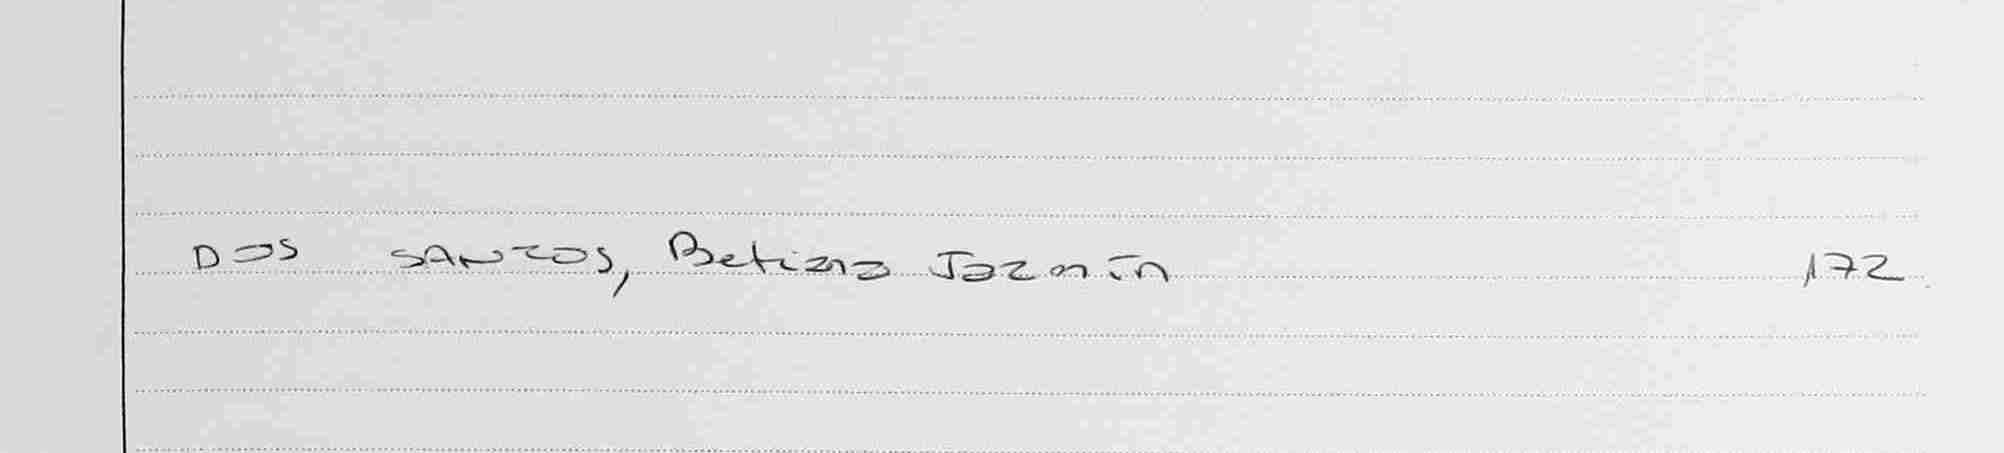 DOS SANTOS, Betiana Jazmín 172